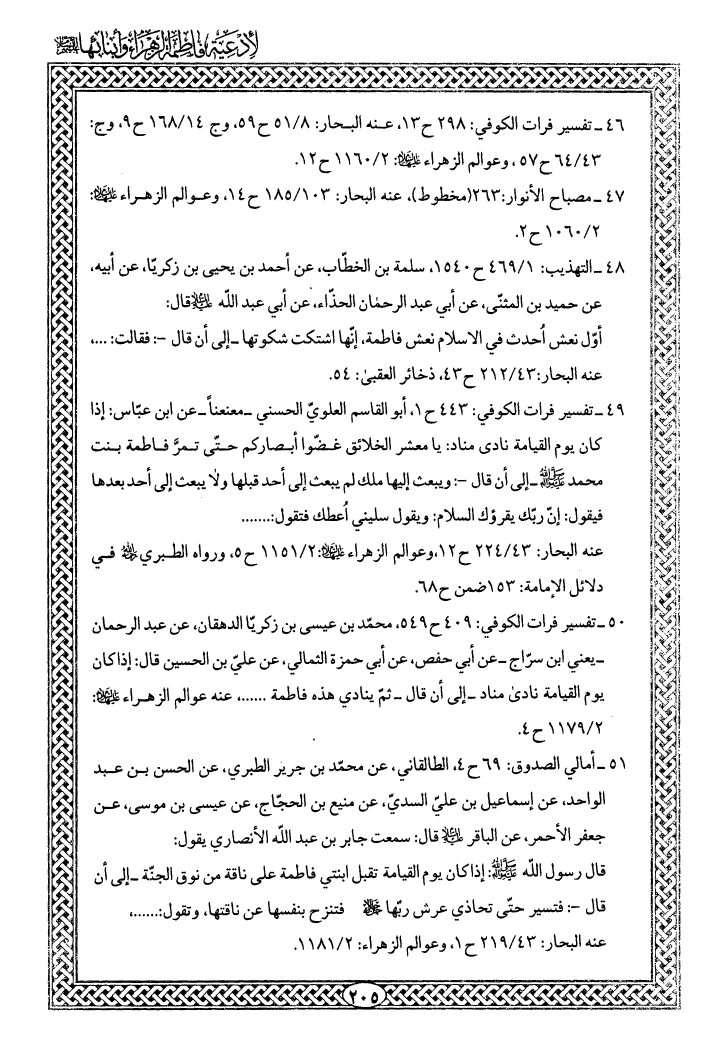 لأدعية فاطمة الزهراء وأبنائها ﷺ
٤٦ ـ تفسير فرات الكوفي: ٢٩٨ ح١٣، عـنه البـحار: ٥١/٨ ح٥٩، وج ١٦٨/١٤ ح٩، وج:
٦٤/٤٣ ح٥٧ ، وعوالم الزهراء عليها السلام: ١١٦٠/٢ ح١٢.
٤٧ ـ مصباح الأنوار:٢٦٣(مخطوط)، عنه البحار: ١٨٥/١٠٣ ح١٤، وعـوالم الزهـراء عليها السلام:
١٠٦٠/٢ ح٢.
٤٨ ـ التهذيب: ٤٦٩/١ ح١٥٤٠، سلمة بن الخطّاب، عن أحمد بن يحيى بن زكريّا، عن أبيه،
عن حميد بن المثنّى، عن أبي عبد الرحمٰان الحذّاء، عن أبي عبد اللّه عليه السلام قال:
أوّل نعش اُحدث في الاسلام نعش فاطمة، إنّها اشتكت شكوتها ـ إلى أن قال ـ: فقالت: ...،
عنه البحار:٢١٢/٤٣ ح٤٣، ذخائر العقبىٰ: ٥٤.
٤٩ ـ تفسير فرات الكوفي: ٤٤٣ ح١، أبو القاسم العلويّ الحسني ـ معنعناً ـ عن ابن عبّاس: إذا
كان يوم القيامة نادى مناد: يا معشر الخلائق غـضّوا أبـصاركم حـتّى تـمرَّ فـاطمة بـنت
محمد ﷺ ـ إلى أن قال ـ: ويبعث إليها ملك لم يبعث إلى أحد قبلها ولا يبعث إلى أحد بعدها
فيقول: إنّ ربّك يقرؤك السلام: ويقول سليني اُعطك فتقول:.......
عنه البحار: ٢٢٤/٤٣ ح١٢،وعوالم الزهراء عليها السلام:١١٥١/٢ ح٥، ورواه الطـبري رحمه الله فـي
دلائل الإمامة: ١٥٣ضمن ح٦٨.
٥٠ ـ تفسير فرات الكوفي: ٤٠٩ ح٥٤٩، محمّد بن عيسى بن زكريّا الدهقان، عن عبد الرحمان
ـ يعني ابن سرّاج ـ عن أبي حفص، عن أبي حمزة الثمالي، عن عليّ بن الحسين قال: إذا كان
يوم القيامة نادىٰ مناد ـ إلى أن قال ـ ثمّ ينادي هذه فاطمة ......، عنه عوالم الزهـراء عليها السلام:
١١٧٩/٢ ح٤.
٥١ ـ أمالي الصدوق: ٦٩ ح٤، الطالقاني، عن محمّد بن جرير الطبري، عن الحسن بـن عـبد
الواحد، عن إسماعيل بن عليّ السديّ، عن منيع بن الحجّاج، عن عيسى بن موسى، عـن
جعفر الأحمر، عن الباقر عليه السلام قال: سمعت جابر بن عبد اللّه الأنصاري يقول:
قال رسول اللّه ﷺ: إذا كان يوم القيامة تقبل ابنتي فاطمة على ناقة من نوق الجنّة ـ إلى أن
قال ـ: فتسير حتّى تحاذي عرش ربّها جل جلاله فتنزح بنفسها عن ناقتها، وتقول:......،
عنه البحار: ٢١٩/٤٣ ح١، وعوالم الزهراء: ١١٨١/٢.
٢٠٥